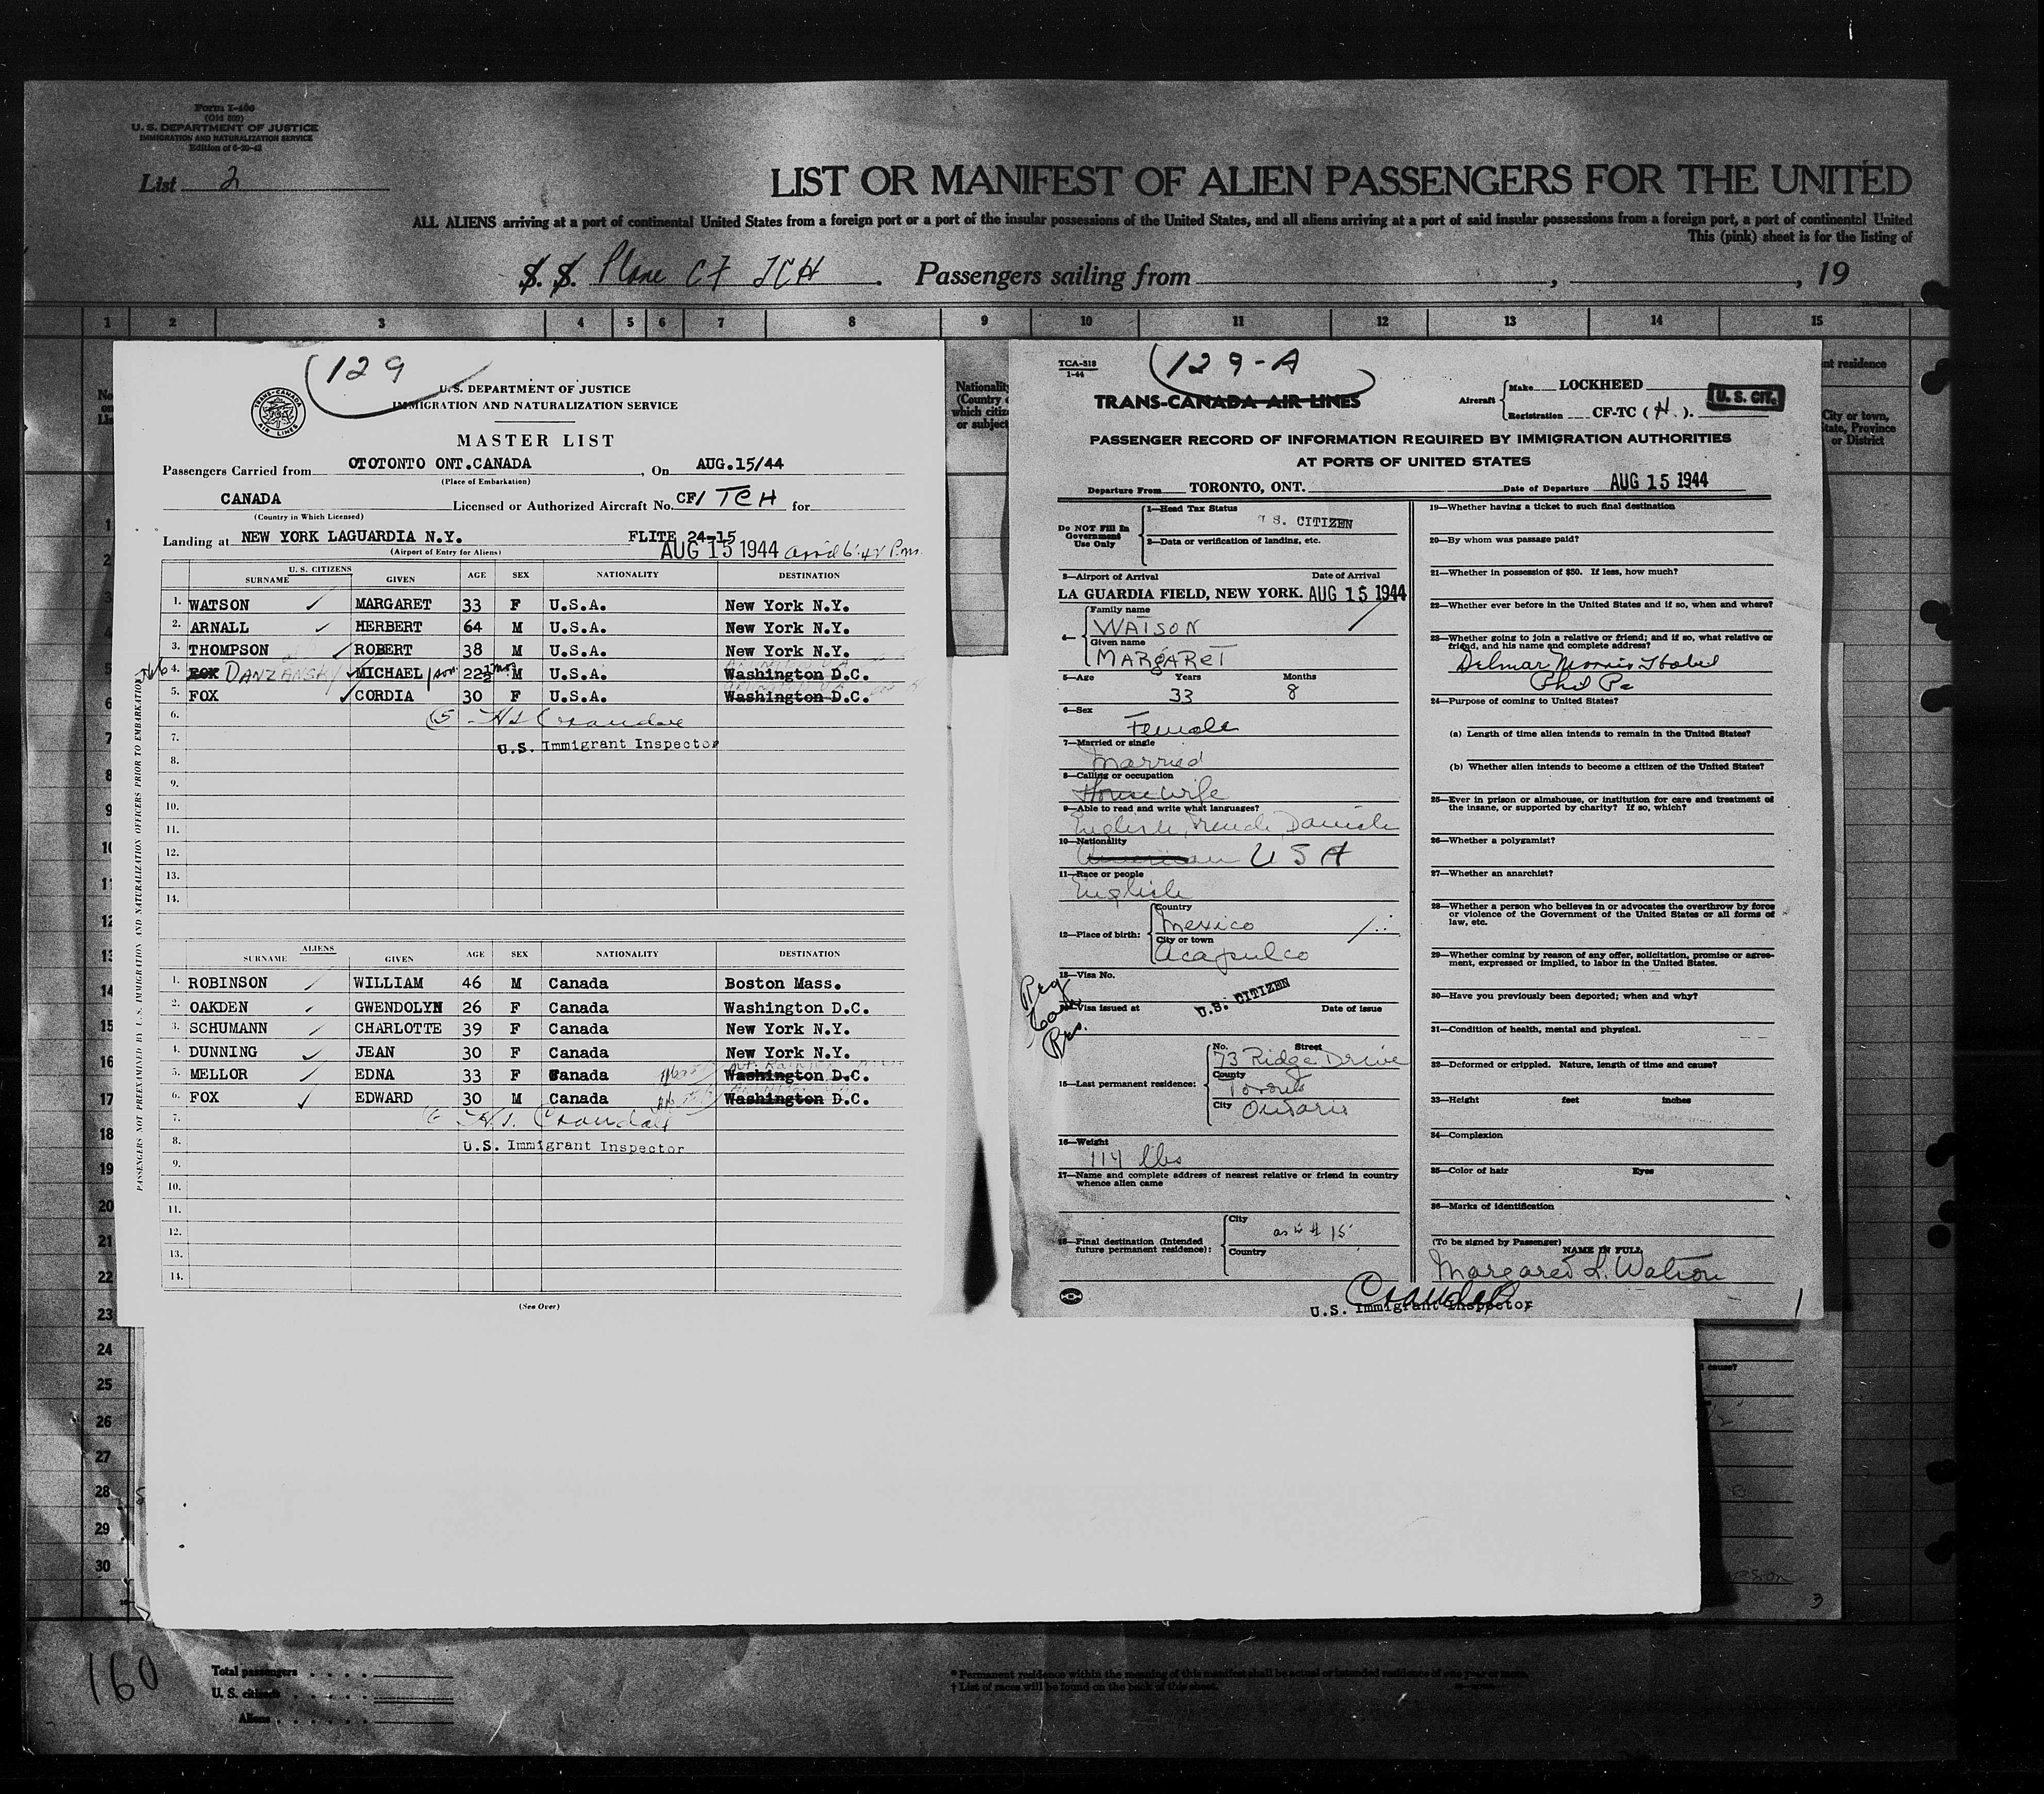 Form I-466
(Old 500)
U. S. DEPARTMENT OF JUSTICE
IMMIGRATION AND NATURALIZATION SERVICE
Edition of 6-20-42
List 2
LIST OR MANIFEST OF ALIEN PASSENGERS FOR THE UNITED
ALL ALIENS arriving at a port of continental United States from a foreign port or a port of the insular possessions of the United States, and all aliens arriving at a port of said insular possessions from a foreign port, a port of continental United
This (pink) sheet is for the listing of
S. S. Plane CF TCH . Passengers sailing from , , 19
1 2 3 4 5 6 7 8 9 10 11 12 13 14 15
129
TRANS-CANADA AIR LINES
U. S. DEPARTMENT OF JUSTICE
IMMIGRATION AND NATURALIZATION SERVICE
MASTER LIST
Passengers Carried from OTOTONTO ONT.CANADA , On AUG.15/44
(Place of Embarkation)
CANADA Licensed or Authorized Aircraft No. CF/ TCH for
(Country in Which Licensed)
Landing at NEW YORK LAGUARDIA N.Y. FLITE 24-15
(Airport of Entry for Aliens) AUG 15 1944 P.m.
U. S. CITIZENS
SURNAME GIVEN AGE SEX NATIONALITY DESTINATION
1. WATSON MARGARET 33 F U.S.A. New York N.Y.
2. ARNALL HERBERT 64 M U.S.A. New York N.Y.
3. THOMPSON ROBERT 38 M U.S.A. New York N.Y.
4. FOX DANZANSKY MICHAEL 22½ mos M U.S.A. Washington D.C.
5. FOX CORDIA 30 F U.S.A. Washington D.C.
6. 5
7. U.S. Immigrant Inspector
8.
9.
10.
11.
12.
13.
14.
ALIENS
SURNAME GIVEN AGE SEX NATIONALITY DESTINATION
1. ROBINSON WILLIAM 46 M Canada Boston Mass.
2. OAKDEN GWENDOLYN 26 F Canada Washington D.C.
3. SCHUMANN CHARLOTTE 39 F Canada New York N.Y.
4. DUNNING JEAN 30 F Canada New York N.Y.
5. MELLOR EDNA 33 F Canada Washington D.C.
6. FOX EDWARD 30 M Canada Washington D.C.
7. 6
8. U.S. Immigrant Inspector
9.
10.
11.
12.
13.
14.
(See Over)
PASSENGERS NOT PREEXAMINED BY U.S. IMMIGRATION AND NATURALIZATION OFFICERS PRIOR TO EMBARKATION
TCA-518
1-44
129-A
TRANS-CANADA AIR LINES
Aircraft Make LOCKHEED
Registration CF-TC ( H ).
U. S. CIT.
PASSENGER RECORD OF INFORMATION REQUIRED BY IMMIGRATION AUTHORITIES
AT PORTS OF UNITED STATES
Departure From TORONTO, ONT. Date of Departure AUG 15 1944
Do NOT Fill In Government Use Only
1—Head Tax Status
U. S. CITIZEN
2—Data or verification of landing, etc.
3—Airport of Arrival Date of Arrival
LA GUARDIA FIELD, NEW YORK. AUG 15 1944
4— Family name
WATSON
Given name
MARGARET
5—Age Years Months
33 8
6—Sex
Female
7—Married or single
Married
8—Calling or occupation
Housewife
9—Able to read and write what languages?
English, French, Danish
10—Nationality
American USA
11—Race or people
English
12—Place of birth: Country
Mexico
City or town
Acapulco
13—Visa No.
14—Visa issued at Date of issue
U.S. CITIZEN
15—Last permanent residence: No. Street
73 Ridge Drive
County
Toronto
City Ontario
16—Weight
114 lbs
17—Name and complete address of nearest relative or friend in country
whence alien came
18—Final destination (Intended
future permanent residence): City
as in # 15
Country
19—Whether having a ticket to such final destination
20—By whom was passage paid?
21—Whether in possession of $50. If less, how much?
22—Whether ever before in the United States and if so, when and where?
23—Whether going to join a relative or friend; and if so, what relative or
friend, and his name and complete address?
Delmar Morris Hotel
Phil Pa
24—Purpose of coming to United States?
(a) Length of time alien intends to remain in the United States?
(b) Whether alien intends to become a citizen of the United States?
25—Ever in prison or almshouse, or institution for care and treatment of
the insane, or supported by charity? If so, which?
26—Whether a polygamist?
27—Whether an anarchist?
28—Whether a person who believes in or advocates the overthrow by force
or violence of the Government of the United States or all forms of
law, etc.
29—Whether coming by reason of any offer, solicitation, promise or agree-
ment, expressed or implied, to labor in the United States.
30—Have you previously been deported; when and why?
31—Condition of health, mental and physical.
32—Deformed or crippled. Nature, length of time and cause?
33—Height feet inches
34—Complexion
35—Color of hair Eyes
36—Marks of identification
(To be signed by Passenger)
NAME IN FULL
Margaret L. Watson
U.S. Immigrant Inspector
160
Total passengers
U. S. citizens
Aliens
* Permanent residence within the meaning of this manifest shall be actual or intended residence of one year or more.
† List of races will be found on the back of this sheet.
3